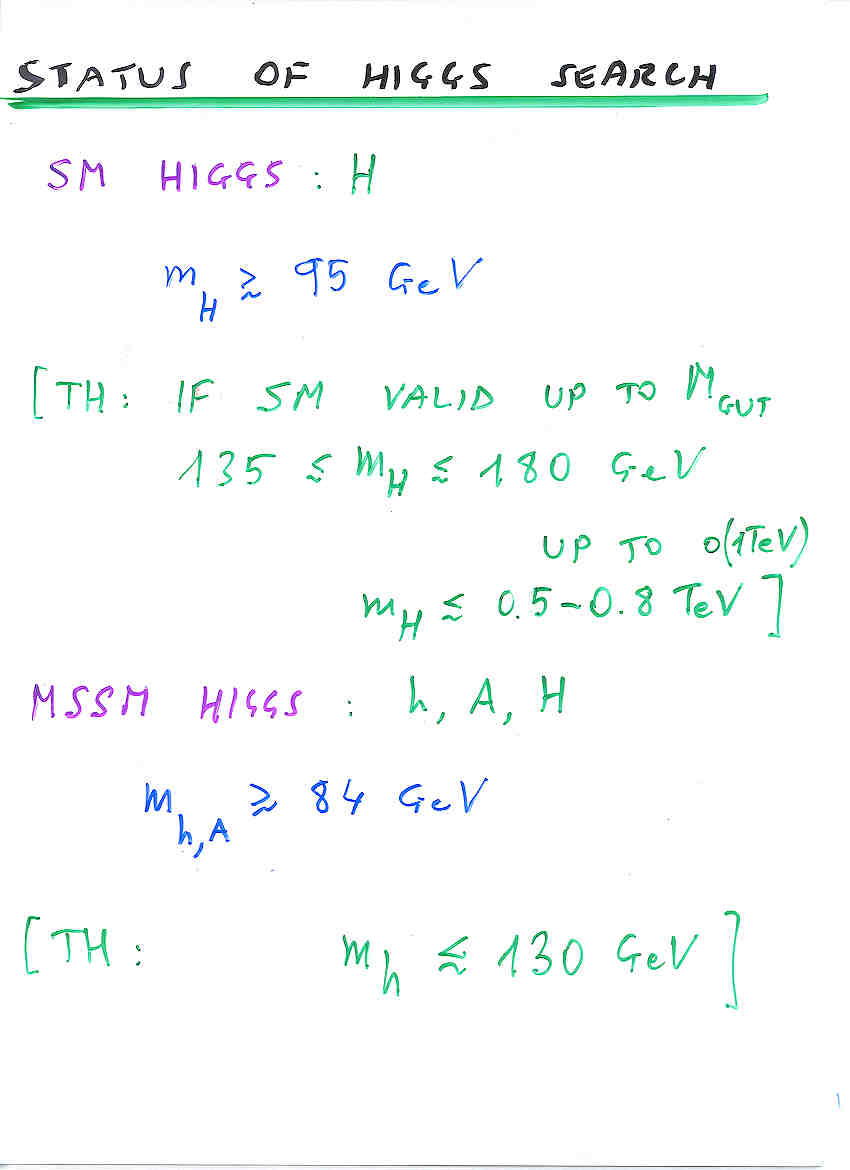 STATUS OF HIGGS SEARCH
SM HIGGS : H
m_H ≳ 95 GeV
[TH: IF SM VALID UP TO M_GUT
135 ≲ m_H ≲ 180 GeV
UP TO O(1TeV)
m_H ≲ 0.5-0.8 TeV ]
MSSM HIGGS : h, A, H
m_h,A ≳ 84 GeV
[TH: m_h ≲ 130 GeV ]
1